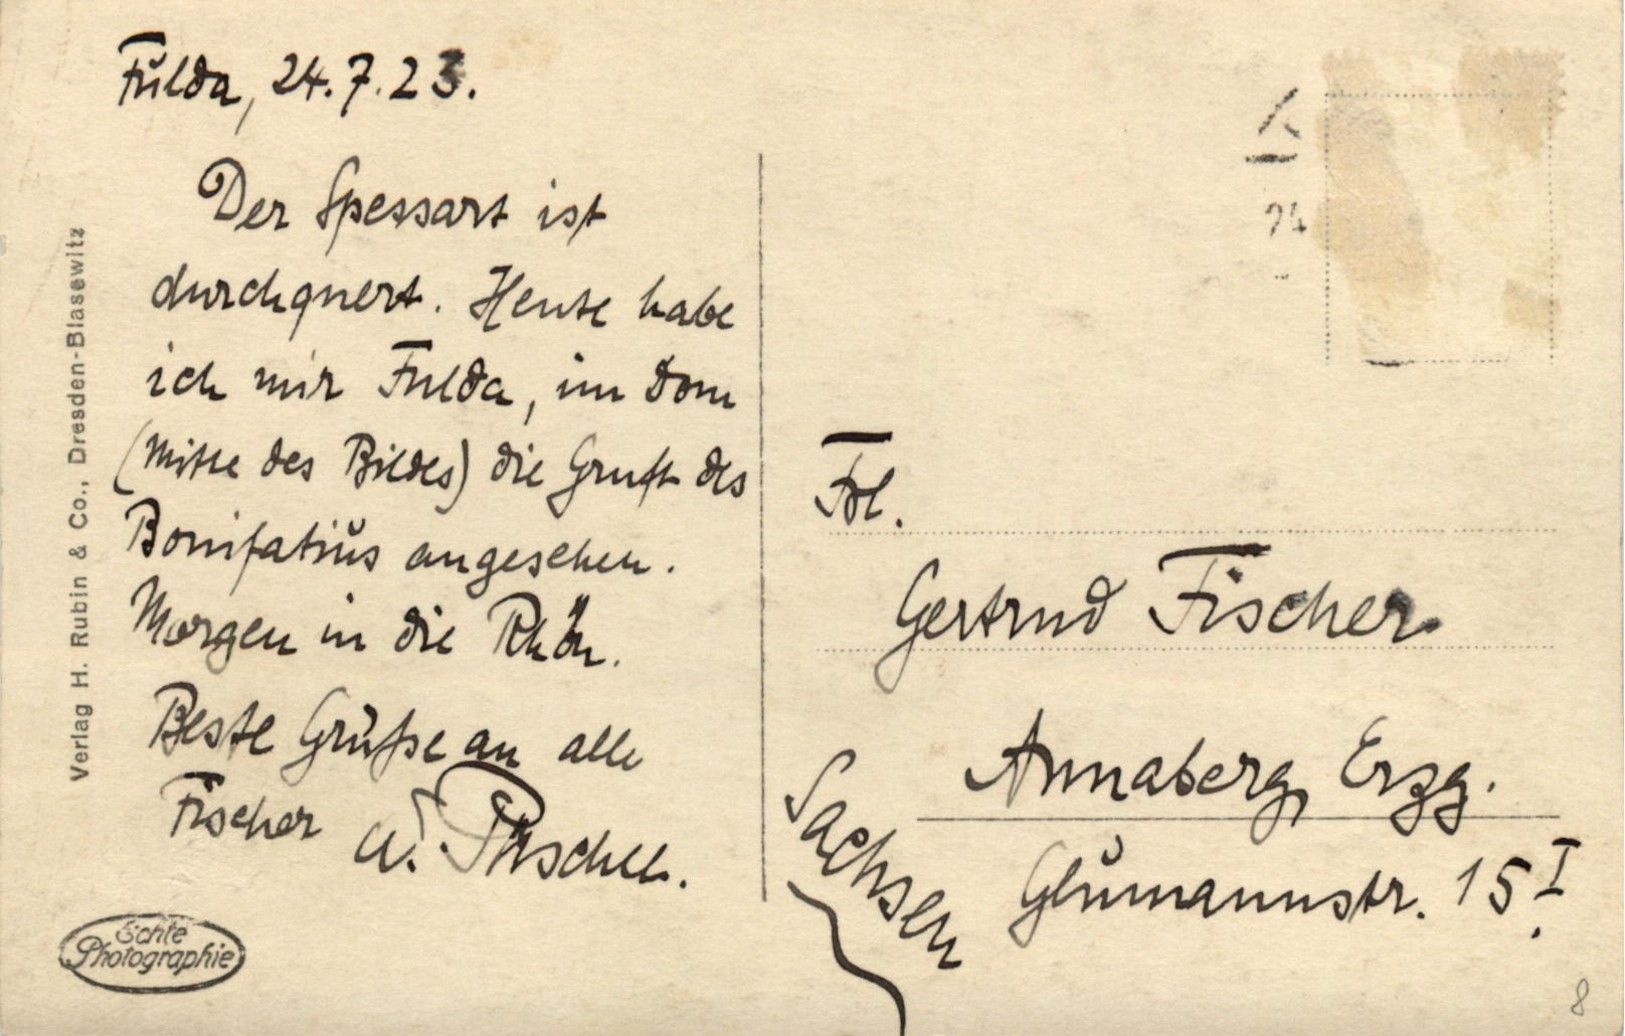 Fulda, 24.7.23.
Der Spessart ist
durchquert. Heute habe
ich mir Fulda, im Dom
(Mitte des Bildes) die Gruft des
Bonifatius angesehen.
Morgen in die Rhön.
Beste Grüße an alle
Fischer u.
Verlag H. Rubin & Co., Dresden-Blasewitz
Echte
Photographie
Frl.
Gertrud Fischer
Annaberg, Erzg.
Sachsen
15 I.
24
8